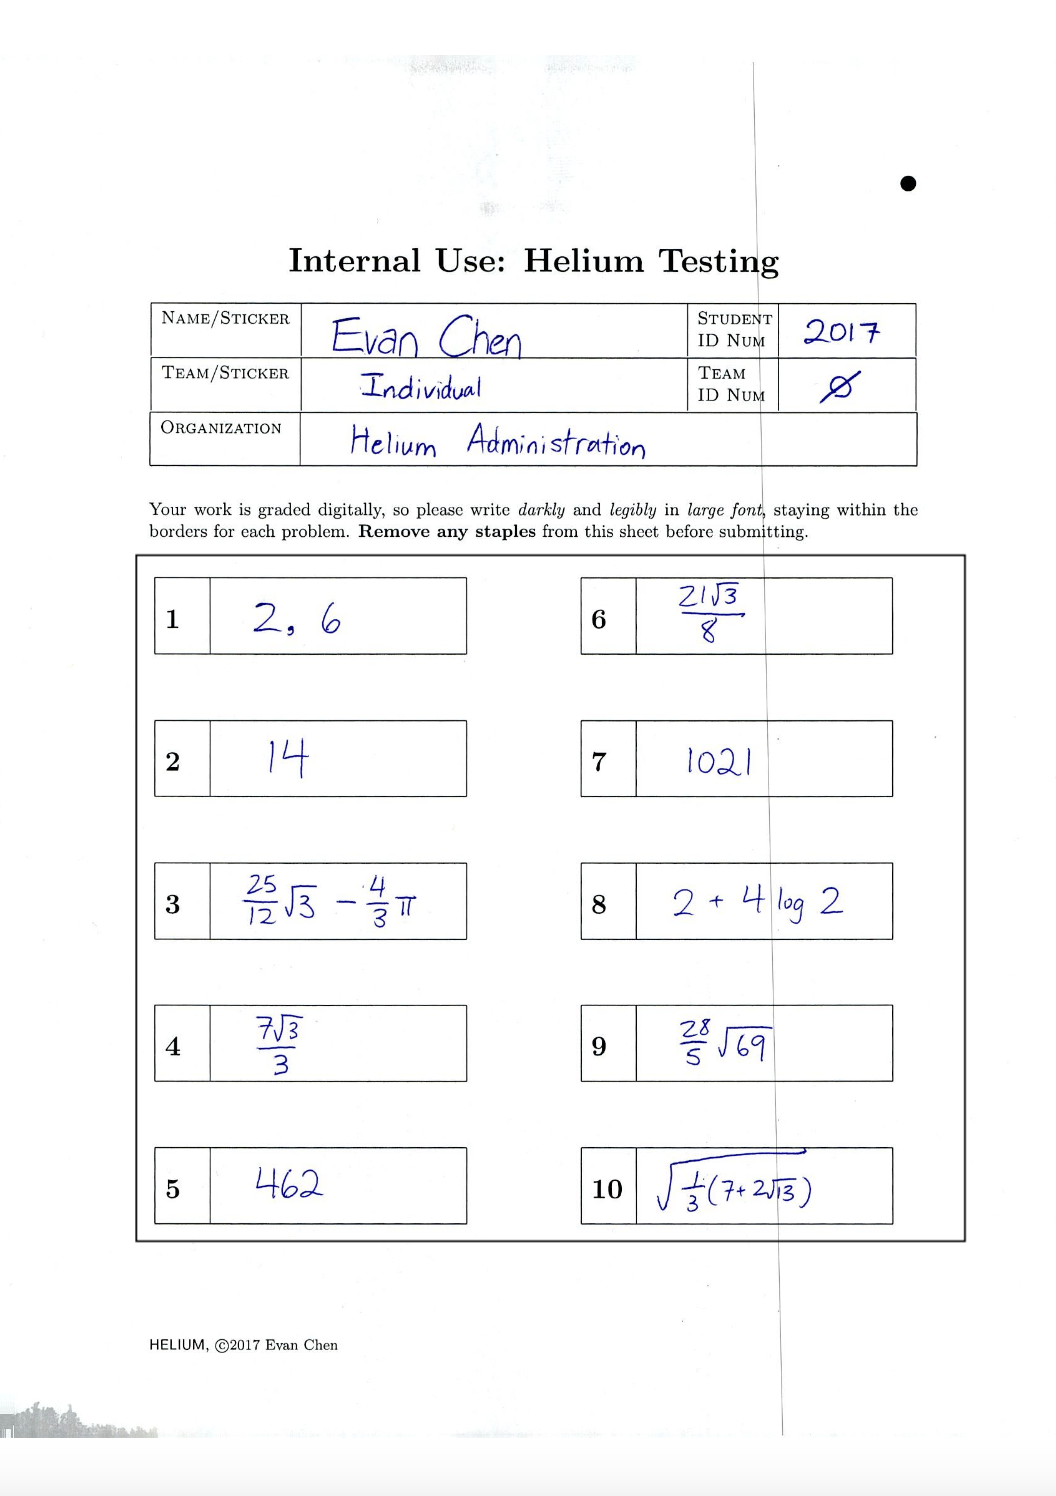 Internal Use: Helium Testing
NAME/STICKER Evan Chen STUDENT ID NUM 2017
TEAM/STICKER Individual TEAM ID NUM Ø
ORGANIZATION Helium Administration
Your work is graded digitally, so please write darkly and legibly in large font, staying within the
borders for each problem. Remove any staples from this sheet before submitting.
1 2, 6
2 14
3 25/12 √3 - 4/3 π
4 7√3/3
5 462
6 21√3/8
7 1021
8 2 + 4 log 2
9 28/5 √69
10 √(1/3(7+2√13))
HELIUM, ©2017 Evan Chen